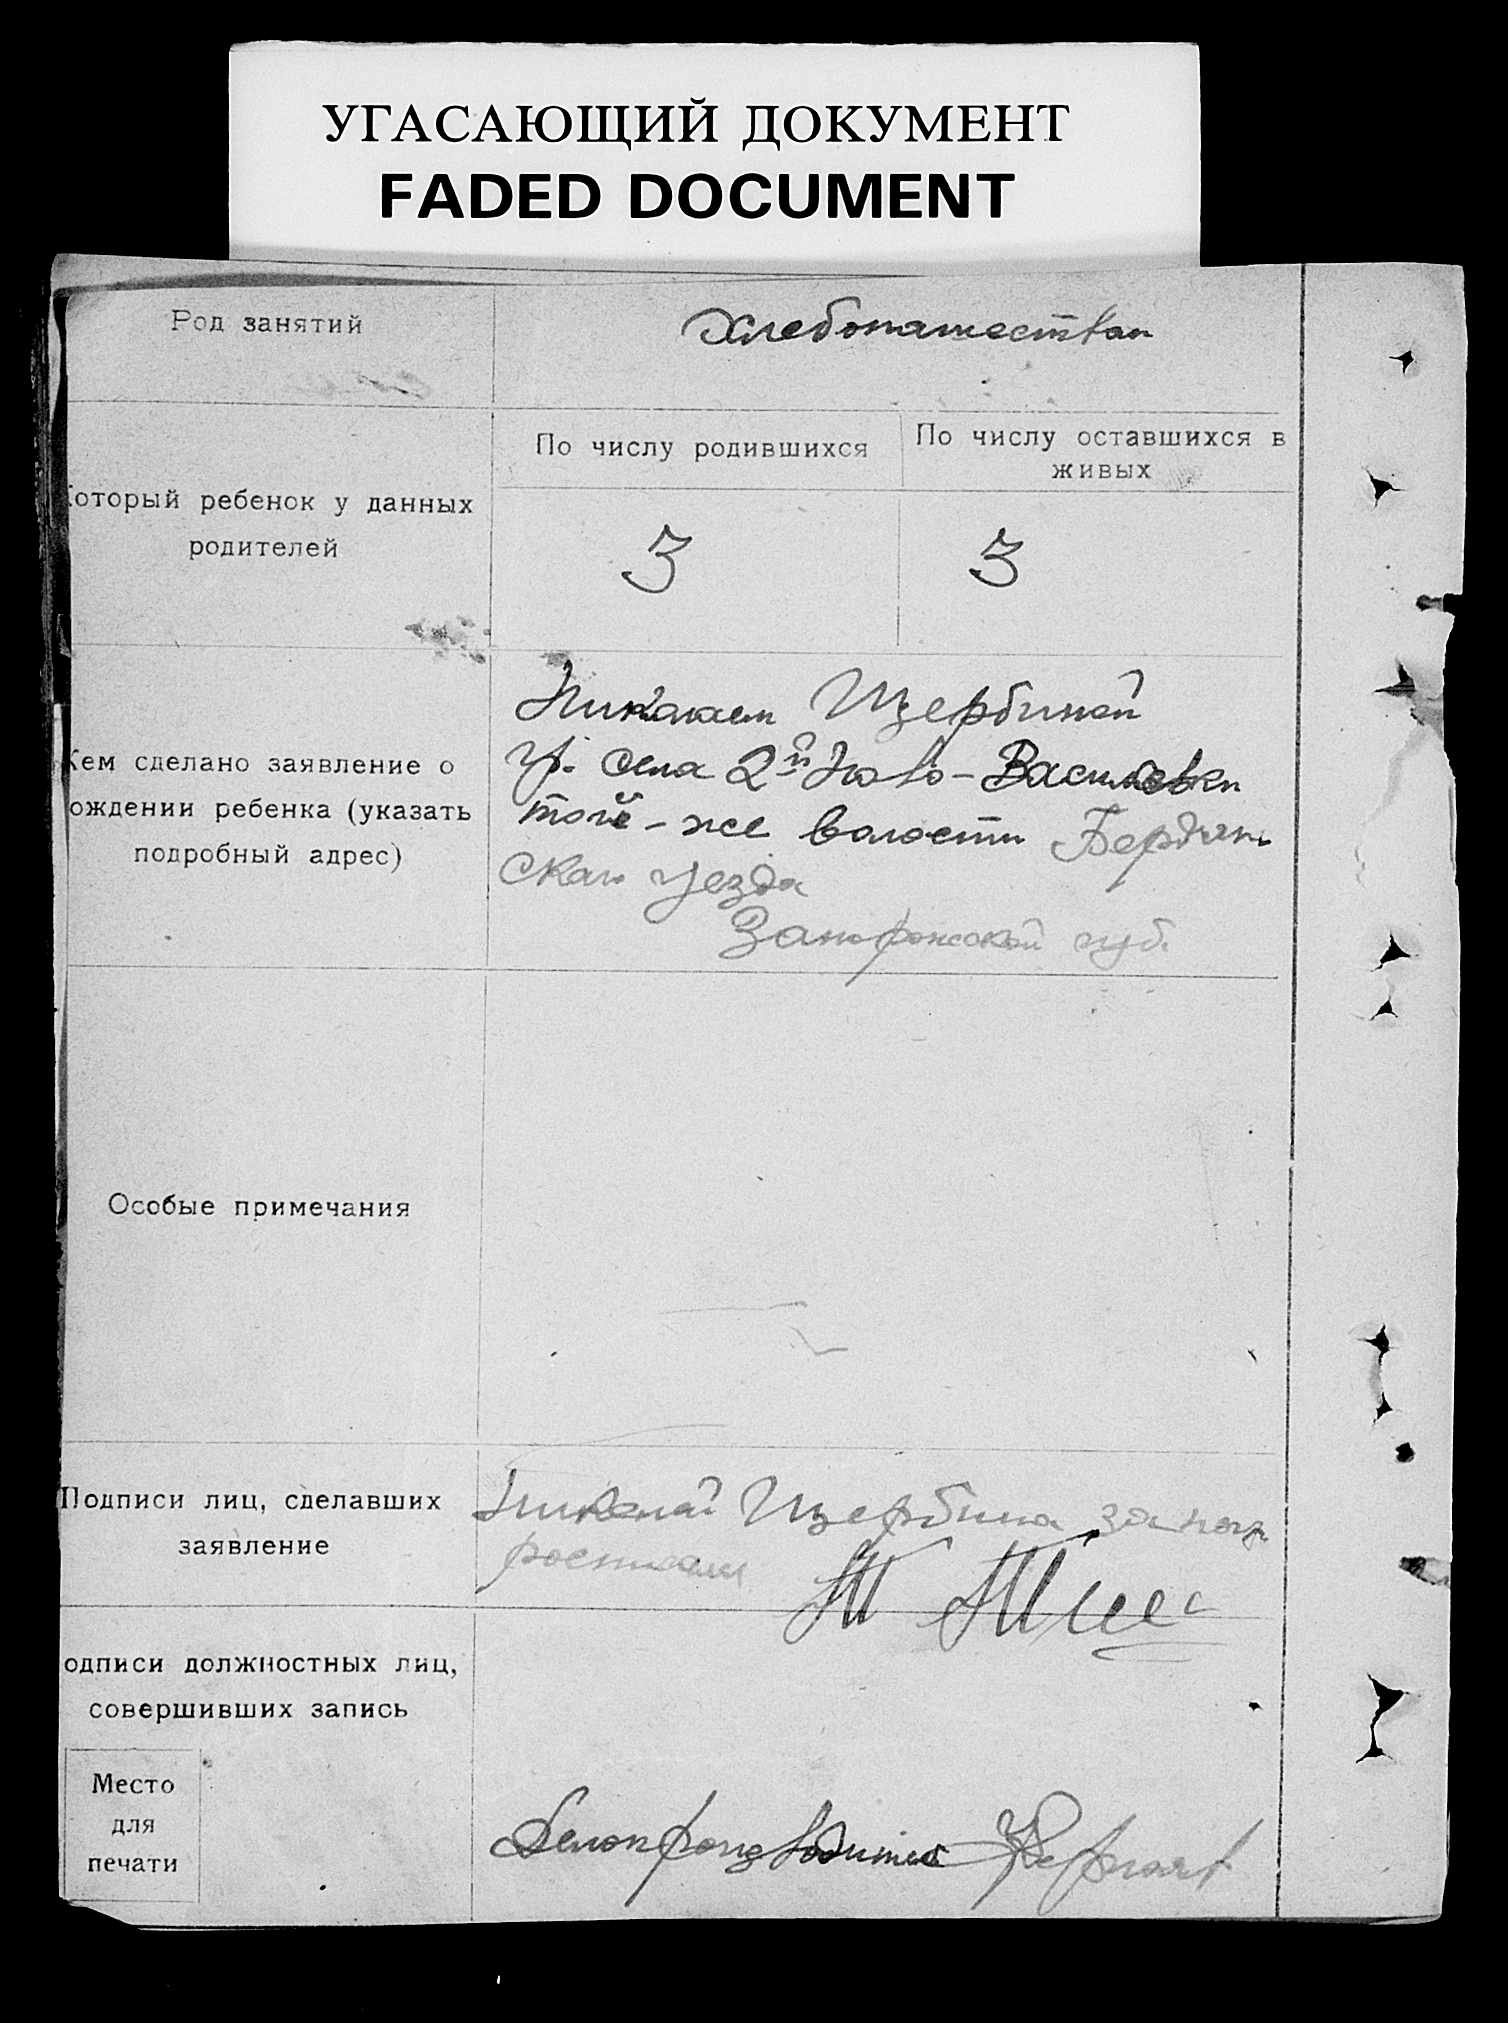 УГАСАЮЩИЙ ДОКУМЕНТ
FADED DOCUMENT
Род занятий
Хлебопашеством
Который ребенок у данных
родителей
По числу родившихся
По числу оставшихся в
живых
3
3
Кем сделано заявление о
рождении ребенка (указать
подробный адрес)
Николаем Щербиной
гр. села 2й Ново-Васильевки
той-же волости Бердян
скаго уезда
Запорожской губ.
Особые примечания
Подписи лиц, сделавших
заявление
Николай Щербина за
Подписи должностных лиц,
совершивших запись
Место
для
печати
Делопроизводитель